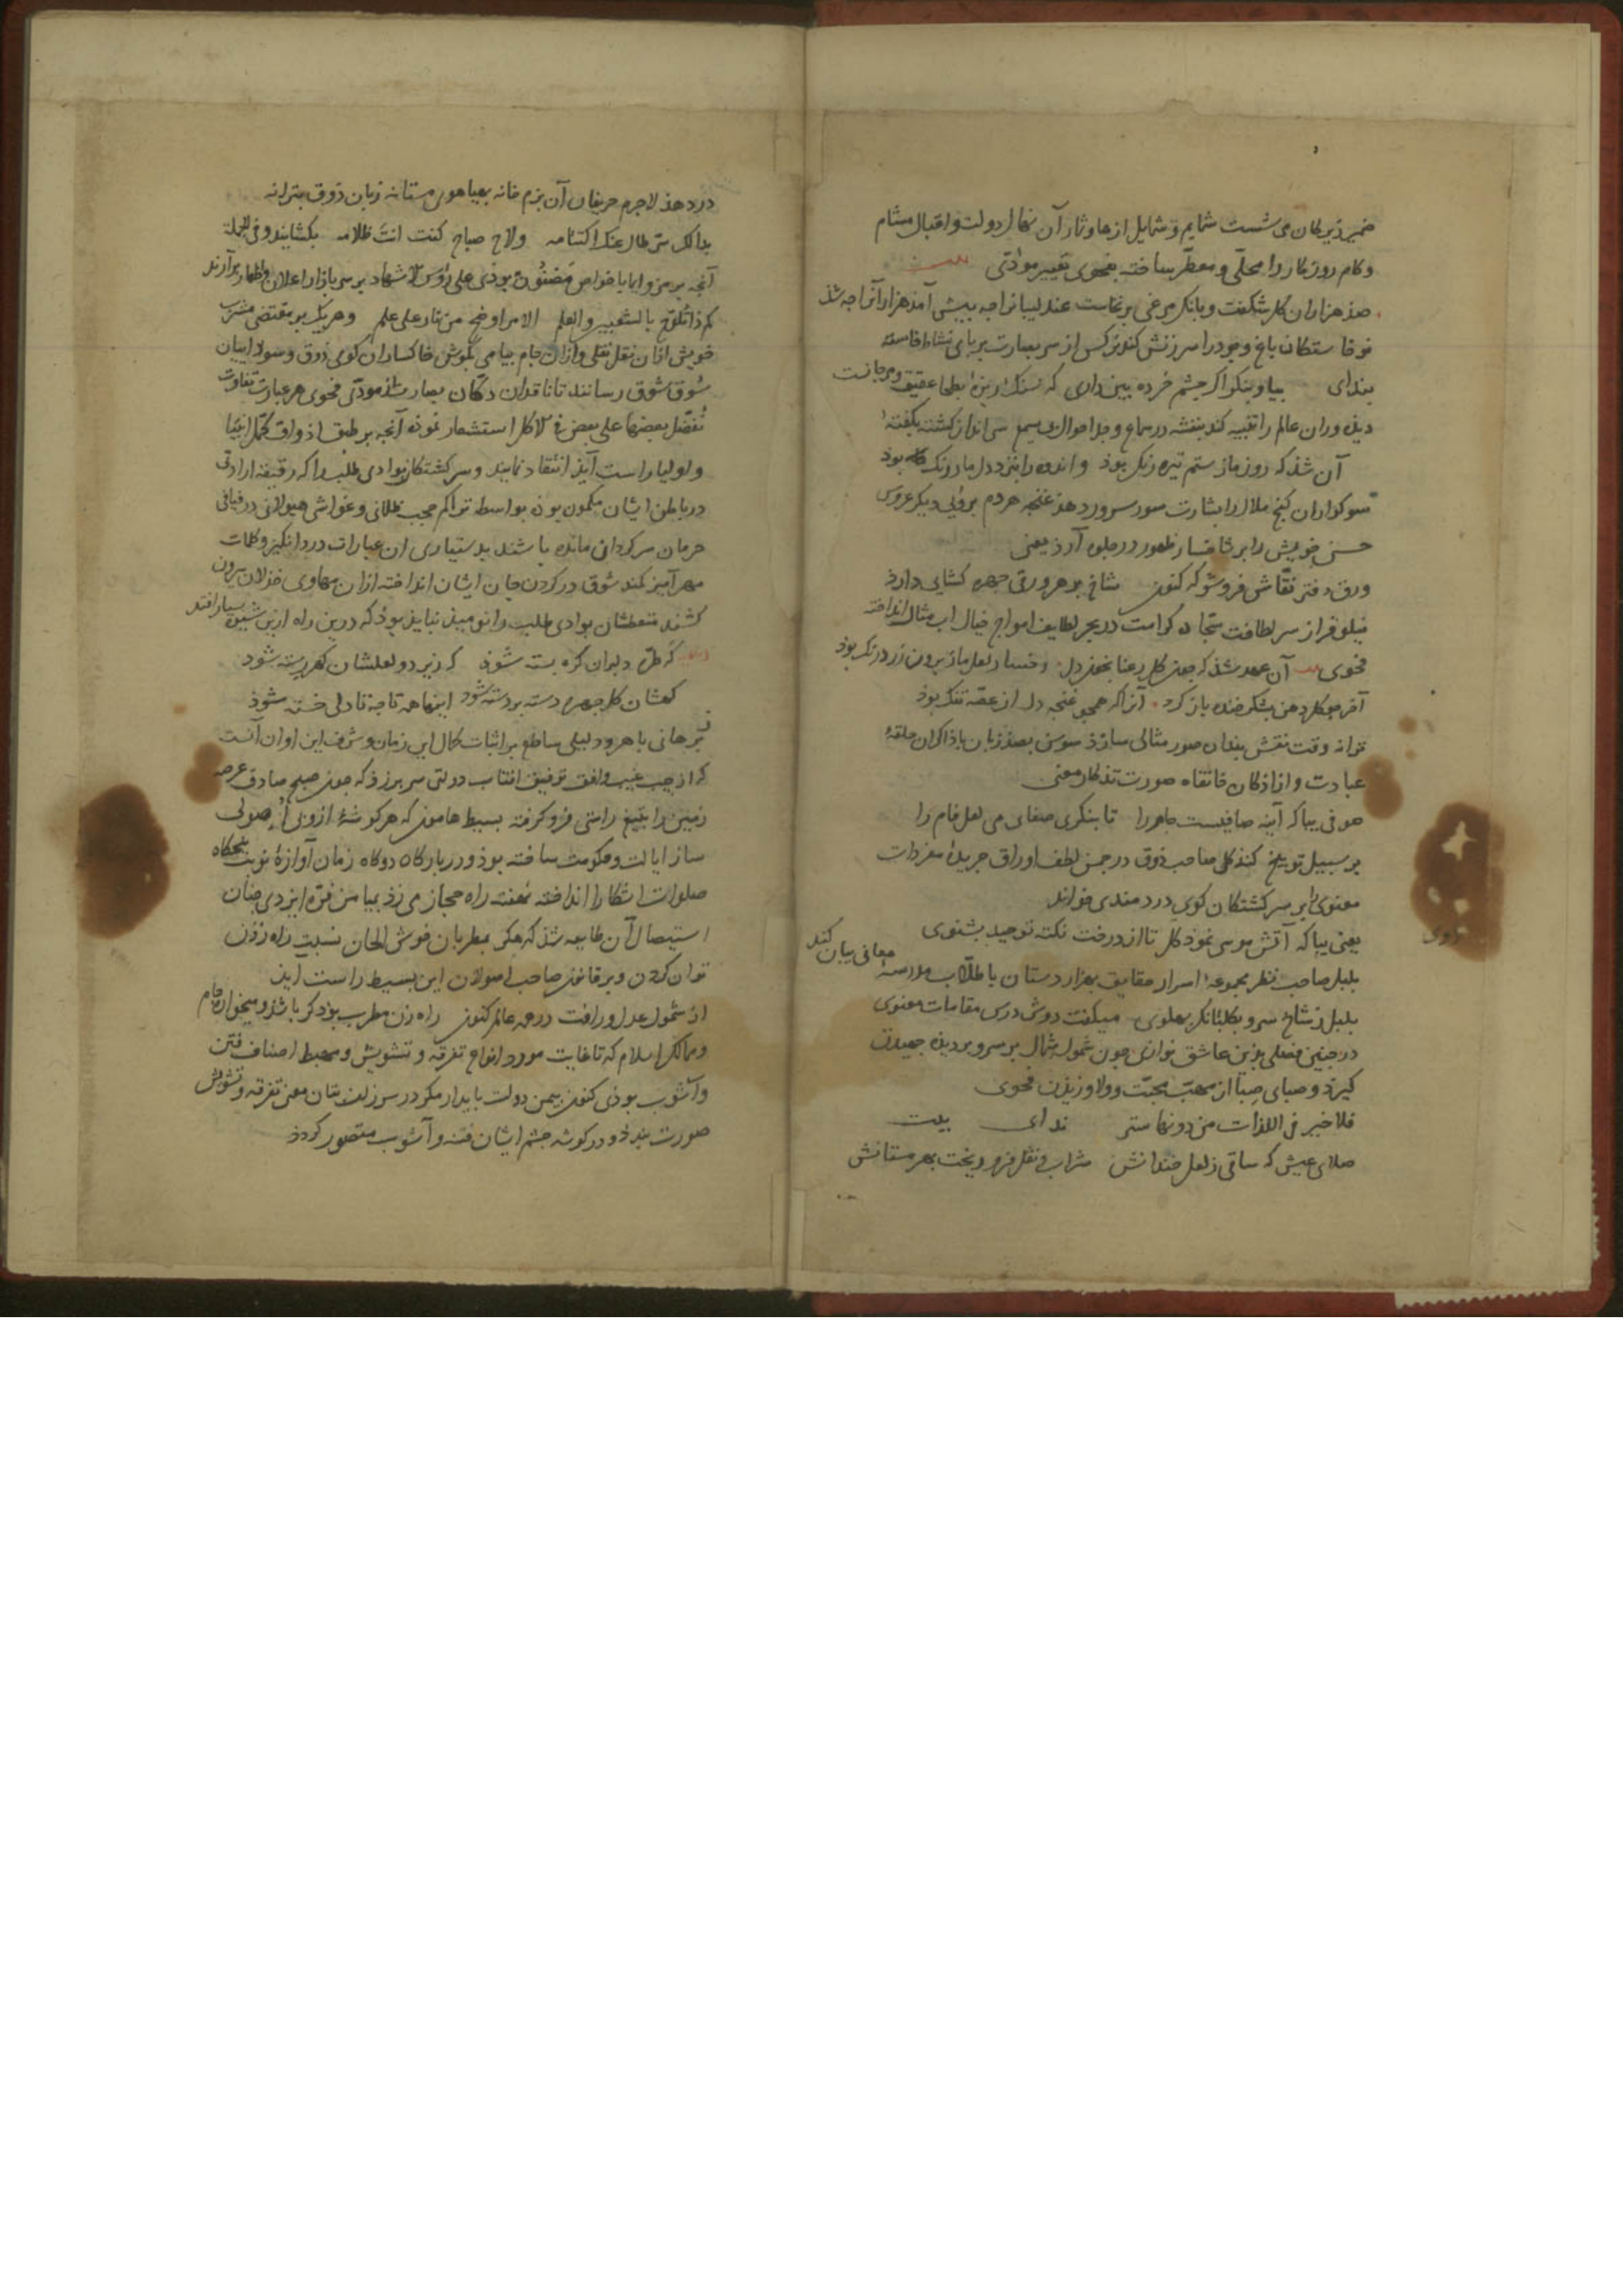 ضمیر زیرکان می شست شمایم و شمایل ازهار و ثمار آن نهال دولت و اقبال مشام
و کام روزکار را محلّی و معطّر ساخته بفحوی تغییر مؤدّتی
صذ هزاران کل شکفت و بانک مرغی برنخاست عندلیبانرا جه بیش آمذ هزارانرا جه شذ
نوخاستکان باغ وجود را سرزنش کند نرکس از سر بصارت بر پای نشاط خاسته
بندای بیا و بنکر اکر جشم خرده بین داری که سنک ریزهٔ بطحا عقیق و مرجانست
دیذه وران عالم را تنبیه کند بنفشه در سماع وجد احوال سر انداز کشته بکفتهٔ
آن شذ که روزماز ستم تیره رنک بوذ و اندوه را بنزد دل ما درنک بوذ
سوکواران کنج ملال را بشارت سور سرور دهذ غنجه هر دم بروئی دیکر عروس
حسن خویش را بر شاخسار ظهور در جلوه آرذ یعنی
ورق دفتر نقّاش فروشو که کنون شاخ بر هر ورقی جهره کشایی دارد
نیلوفر از سر لطافت سجّاده کرامت در بحر لطایف امواج خیال آب مثال انداخته
فحوی آن عهد شذ که جون کل رعنا بخون دل رخسار لعل ما ز برون زرد رنک بوذ
آخر جو کل دهن بشکر خنده باز کرد آنرا که همجو غنجه دل از غصّه تنک بوذ
ترانه وقت نقش بندان صور مثالی سازذ سوسن بصذ زبان با ذاکران حلقهٔ
عبادت و ازاذکان خانقاه صورت تذکار معنی
صوفی بیا که آینه صافیست جام را تا بنکری صفای می لعل فام را
بر سبیل توبیخ کند کل صاحب ذوق در جمن لطف اوراق جریدهٔ مفردات
معنوی را بر سر کشتکان کوی دردمندی خواند
یعنی بیا که آتش موسی نموذ کل تا از درخت نکته توحید بشنوی
بلبل صاحب نظر مجموعهٔ اسرار حقایق بهزار دستان با طلّاب مدرسهٔ معانی بیان کند
بلبل ز شاخ سرو بکلبانک بهلوی میکفت دوش درس مقامات معنوی
در جنین فصلی بذین عاشق نوازی جون شمول شمال بر سر و بر دیذه جهیدن
کیرذ و صبای صبا از مهبّ محبّت و ولا وزیذن فحوی
فلا خیر فی اللذات من دونها ستر ندای بیت
صلای عیش که ساقی ز لعل خندانش شراب و نقل فرو ریخت بهر مستانش
در دهذ لاجرم حریفان آن بزم خانه بهیاهوی مستانه زبان ذوق بترانه
بدا لک سرّ طال عنک اکتتامه ولاح صباح کنت انت ظلامه بکشایند و فی الجملة
آنجه برمز و ایما با خواص مضنون بوذی علی رؤس الاشهاد بر سر بازار اعلان و اظهار برآرند
کم ذا تلوّح بالشعبین والعلم الامر اوضح من نار علی علم و هریک بر مقتضی مشرب
خویش ازان نقل نقلی و ازان جام بیامی بکوش خاکساران کوی ذوق و سودائیان
سوق شوق رسانند تا ناقدان دکان بصارت از مودّی فحوی هر عبارت تفاوت
نفضّل بعضها علی بعض فی الاکل استشعار نموذه آنجه بر طبق اذواق کمّل انبیا
و اولیا راست آیذ انتقاد نمایند و سرکشتکان بوادی طلب را که دقیقه ارادتی
در باطن ایشان مکمون بوذه بواسطه تراکم حجب ظلمانی و غواشی هیولانی در فیافی
حرمان سرکردان مانده باشند بدستیاری ان عبارات درد انکیز و کلمات
مهر آمیز کمند شوق در کردن جان ایشان انداخته ازان مهاوی خذلان بیرون
کشند متعطشان بوادی طلب را نومیذ نبایذ بوذ که درین راه ازین شیوه بسیار افتد
که طرّه دلبران کره بسته شوذ که زیر دو لعلشان کهر رسته شود
کهشان کل جهره دسته بر دسته شود اینها همه تا جه تا دلی خسته شوذ
برهانی باهر و دلیلی ساطع بر اثبات کمال این زمان و شرف این اوان آنست
که از جیب غیب و افق توفیق افتاب دولتی سر برزذ که جون صبح صادق عرصه
زمین را بتیغ راستی فرو کرفته بسیط هامون که هر کوشهٔ ازو بی اصولی
ساز ایالت و حکومت ساخته بوذ و در بارکاه دوکاه زمان آوازهٔ نوبت بنجکاه
صلوات اشکارا انداخته نهفته راه حجاز می زذ بیامن فرّه ایزدی جنان
استیصال آن طایعه شذ که مکر بمطربان خوش الحان نسبت راه زذن
توان کردن و بر قانون صاحب اصولان این بسیط راست ایذ
از شمول عدل و رافت در همه عالم کنون راه زن مطرب بوذ کر باشذ و میخوار جام
و ممالک اسلام که تا غایت مورد انواع تفرقه و تشویش و مهبط اصناف فتن
و آشوب بوذی کنون بیمن دولت بایدار مکر در سر زلف بتان معنی تفرقه و تشویش
صورت بنددو در کوشه جشم ایشان فتنه و آشوب متصور کردذ